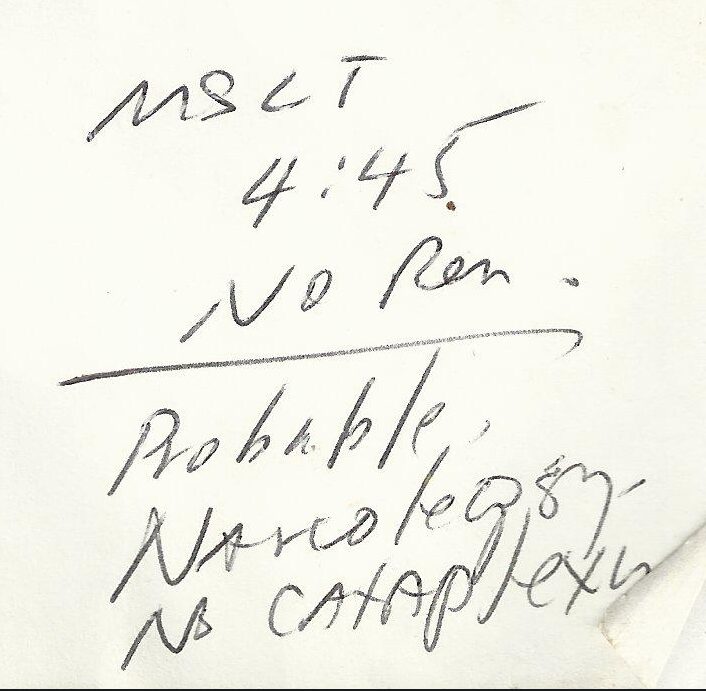 MSLT
4:45
No Rem.
Probable
Narcolepsy
No CATAPlexy